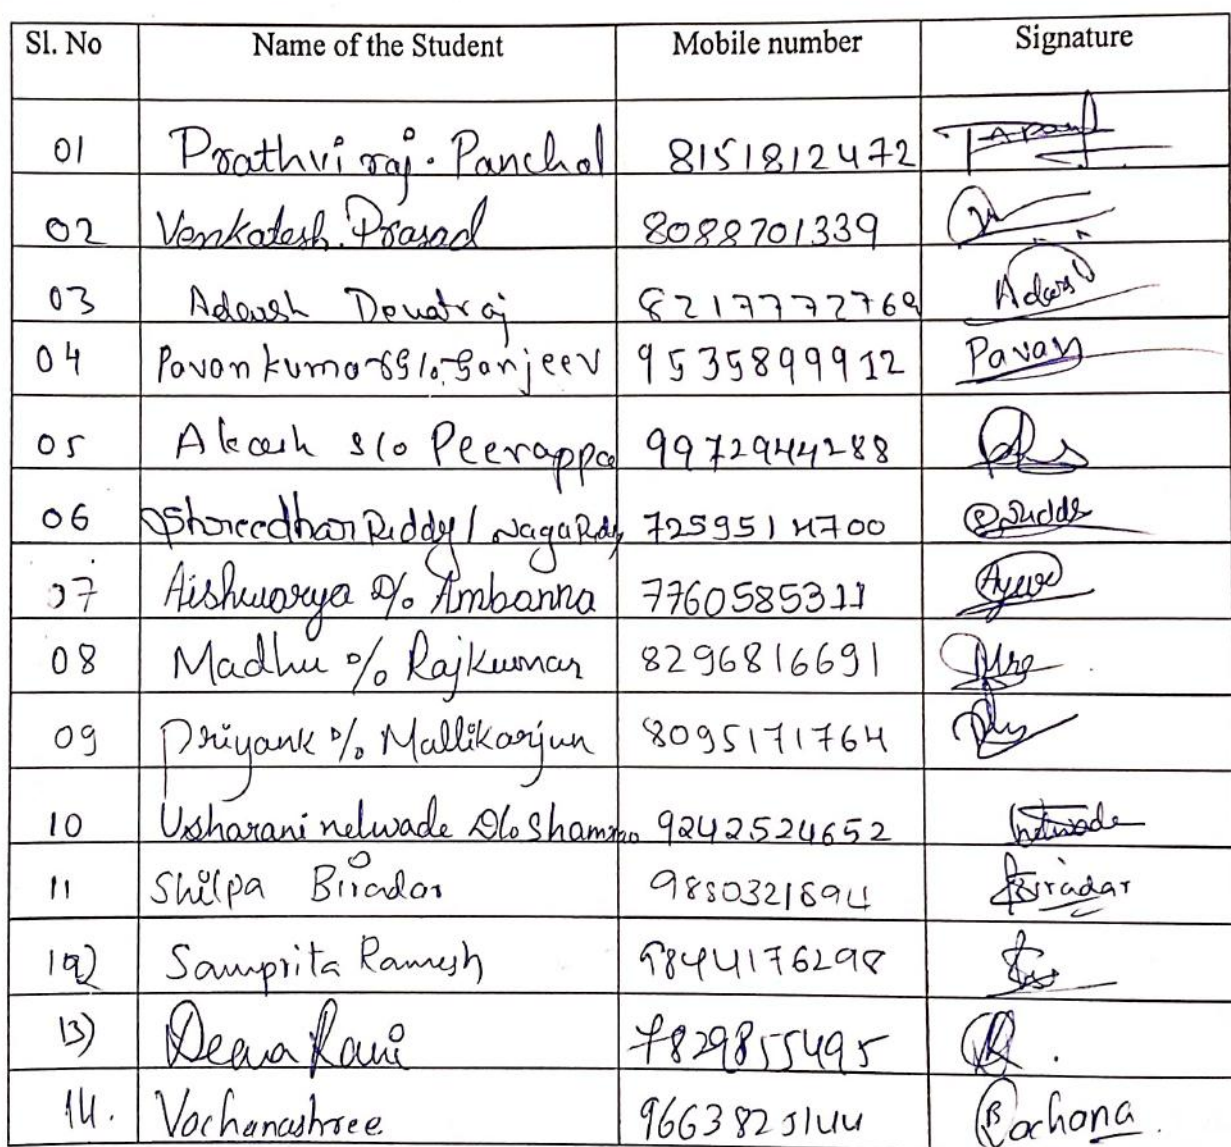 Sl. No Name of the Student Mobile number Signature
01 Prathviraj. Panchal 8151812472
02 Venkatesh. Prasad 8088701339
03 Adarsh 8217772769 Adars
04 Pavan kumar S/o Sanjeev 9535899912 Pavan
05 Akash S/o Peerappa 9972944288
06 Shreedhar Reddy / NagaReddy 7259514700
07 Aishwarya D/o Ambanna 7760585311
08 Madhu D/o Rajkumar 8296816691
09 Priyank D/o Mallikarjun 8095171764
10 Usharani nelwade D/o 9242524652 nelwade
11 Shilpa Biradar Biradar
12) Samprita Ramesh 9844176298
13) Rani 7829855495
14. Vachanashree